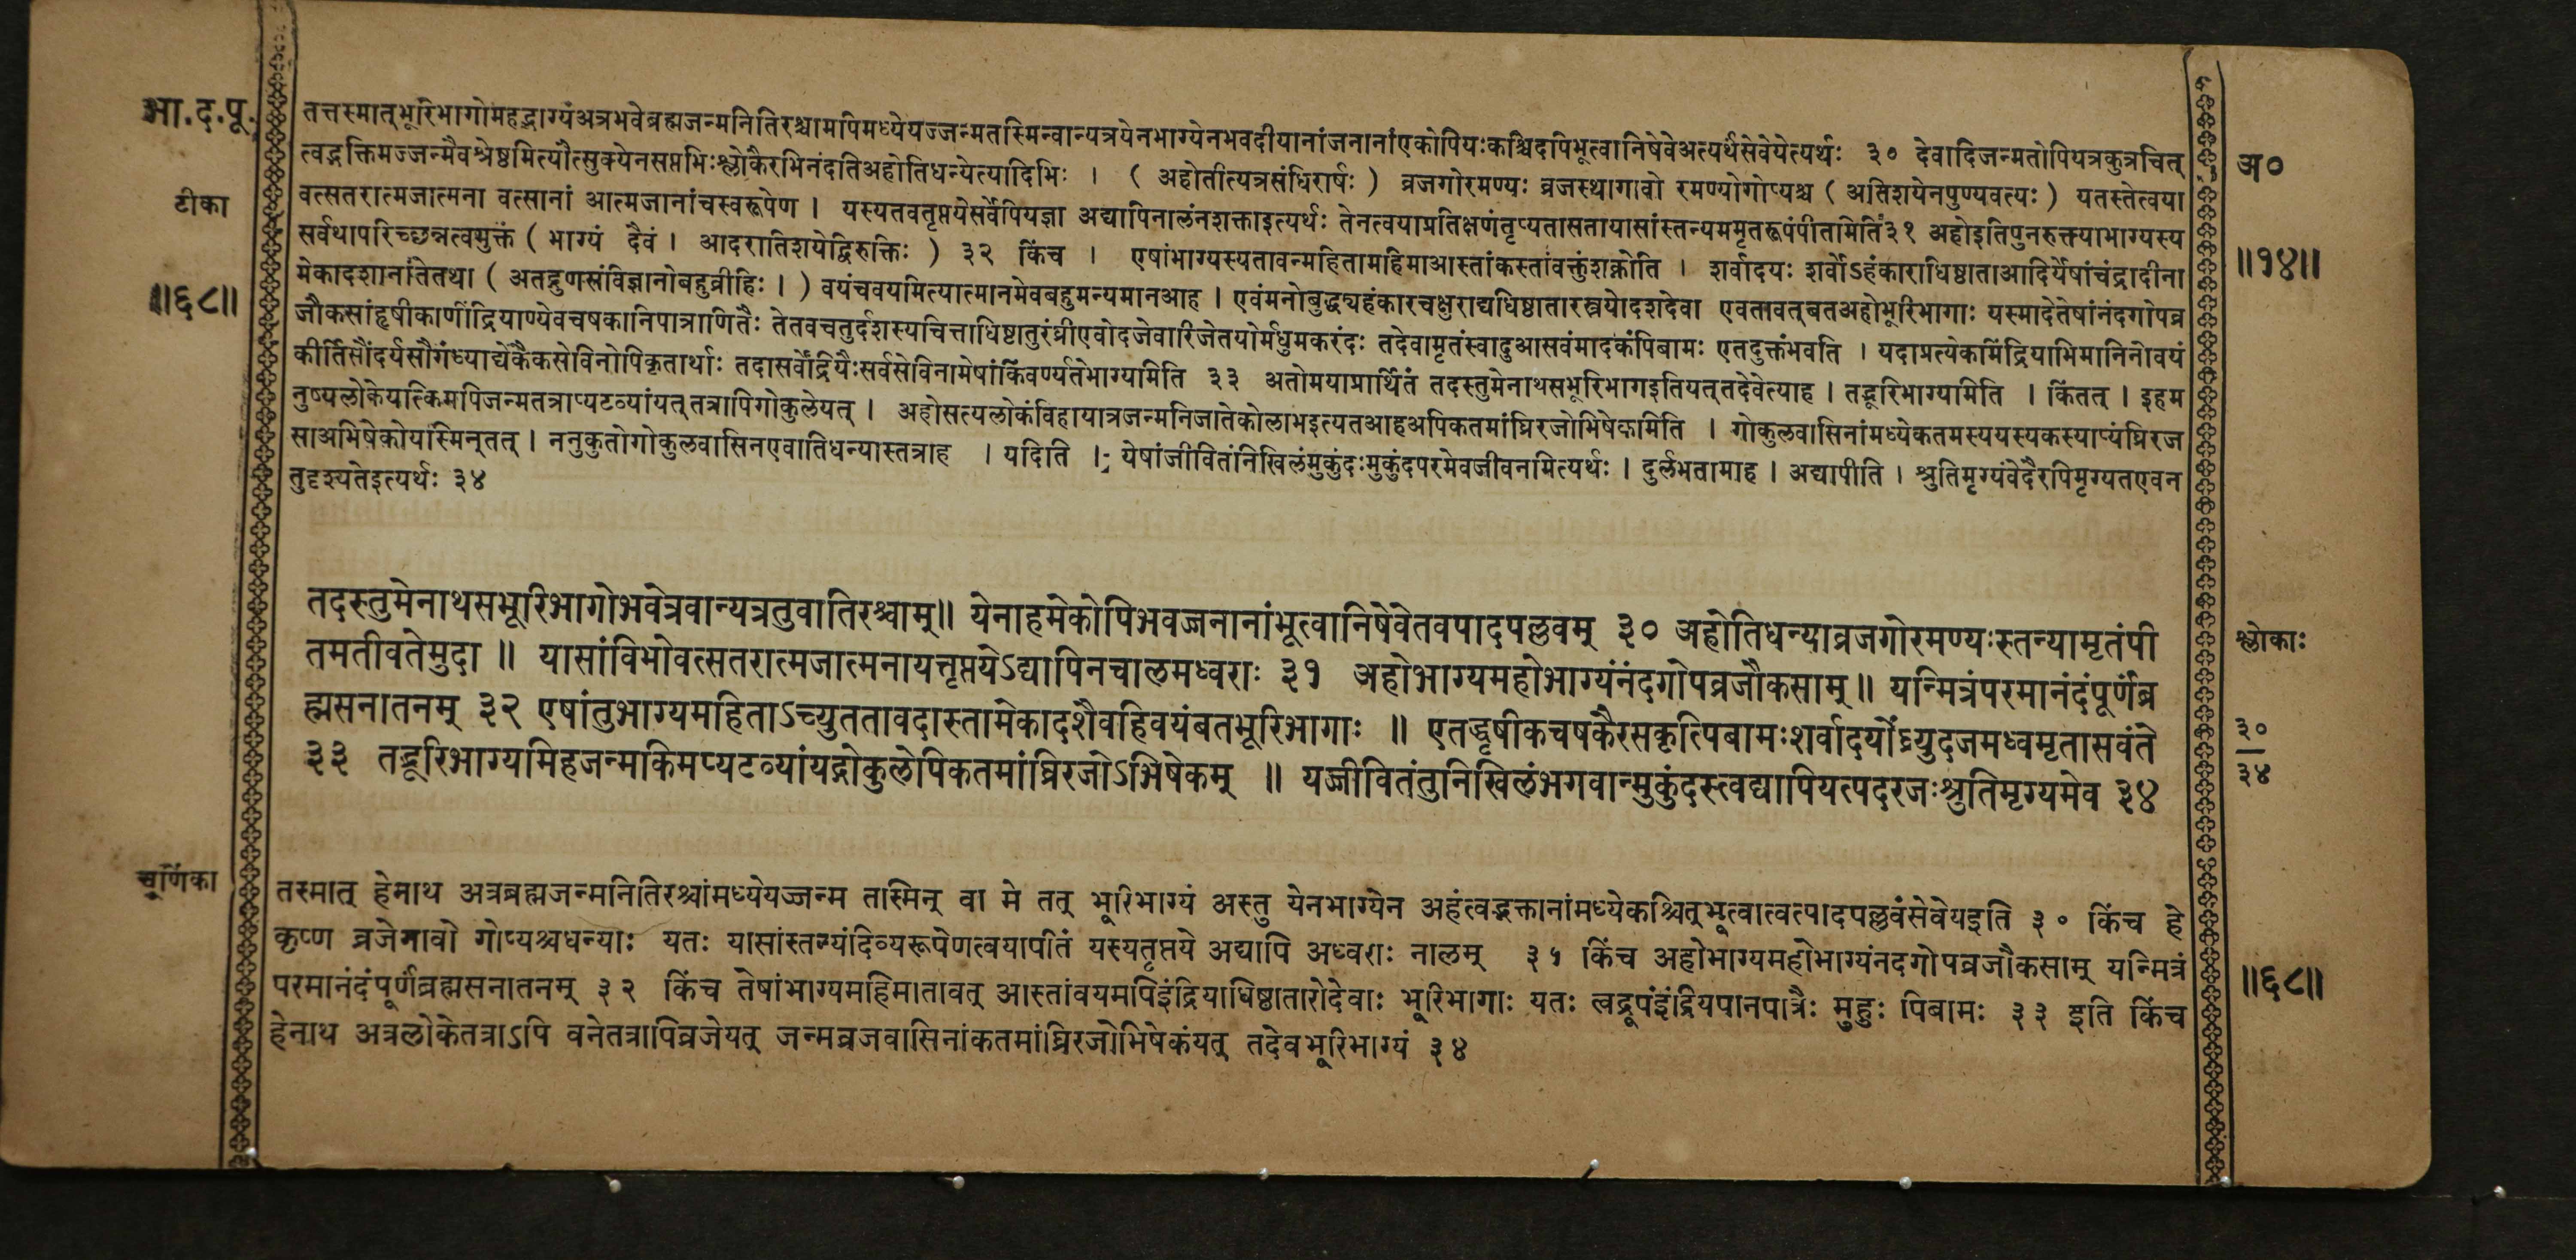 भा.द.पू.
टीका
॥६८॥
तत्तस्मात्भूरिभागोमहद्भाग्यंअत्रभवेब्रह्मजन्मनितिरश्चामपिमध्येयज्जन्मतस्मिन्वान्यत्रयेनभाग्येनभवदीयानांजनानांएकोपियःकश्चिदपिभूत्वानिषेवेअत्यर्थसेवेयेत्यर्थः ३० देवादिजन्मतोपियत्रकुत्रचित्
त्वद्भक्तिमज्जन्मैवश्रेष्ठमित्यौत्सुक्येनसप्तभिःश्लोकैरभिनंदतिअहोतिधन्येत्यादिभिः । ( अहोतीत्यत्रसंधिरार्षः ) व्रजगोरमण्यः व्रजस्थागावो रमण्योगोप्यश्च ( अतिशयेनपुण्यवत्यः ) यतस्तेत्वया
वत्सतरात्मजात्मना वत्सानां आत्मजानांचस्वरूपेण । यस्यतवतृप्तयेसर्वेपियज्ञा अद्यापिनालंनशक्ताइत्यर्थः तेनत्वयाप्रतिक्षणंतृप्यतासतायासांस्तन्यममृतरूपंपीतामिति३१ अहोइतिपुनरुक्त्याभाग्यस्य
सर्वथापरिच्छन्नत्वमुक्तं ( भाग्यं दैवं । आदरातिशयेद्विरुक्तिः ) ३२ किंच । एषांभाग्यस्यतावन्महितामहिमाआस्तांकस्तांवक्तुंशक्नोति । शर्वादयः शर्वोऽहंकाराधिष्ठाताआदिर्येषांचंद्रादीना
मेकादशानांतेतथा ( अतद्गुणसंविज्ञानोबहुव्रीहिः । ) वयंचवयमित्यात्मानमेवबहुमन्यमानआह । एवंमनोबुद्ध्यहंकारचक्षुराद्यधिष्ठातारस्त्रयोदशदेवा एवतावत्बतअहोभूरिभागाः यस्मादेतेषांनंदगोपव्र
जौकसांहृषीकाणींद्रियाण्येवचषकानिपात्राणितैः तेतवचतुर्दशस्यचित्ताधिष्ठातुरंघ्रीएवोदजेवारिजेतयोर्मधुमकरंदः तदेवामृतंस्वादुआसवंमादकंपिबामः एतदुक्तंभवति । यदाप्रत्येकमिंद्रियाभिमानिनोवयं
कीर्तिसौंदर्यसौगंध्याद्येकैकसेविनोपिकृतार्थाः तदासर्वेंद्रियैःसर्वसेविनामेषांकिंवर्ण्यतेभाग्यामिति ३३ अतोमयाप्रार्थितं तदस्तुमेनाथसभूरिभागइतियत्तदेवेत्याह । तद्भूरिभाग्यामिति । किंतत् । इहम
नुष्यलोकेयत्किमपिजन्मतत्राप्यटव्यांयत्तत्रापिगोकुलेयत् । अहोसत्यलोकंविहायात्रजन्मनिजातेकोलाभइत्यतआहअपिकतमांघ्रिरजोभिषेकमिति । गोकुलवासिनांमध्येकतमस्ययस्यकस्याप्यंघ्रिरज
साअभिषेकोयस्मिन्तत् । ननुकुतोगोकुलवासिनएवातिधन्यास्तत्राह । यदिति । येषांजीवितंनिखिलंमुकुंदःमुकुंदपरमेवजीवनमित्यर्थः । दुर्लभतामाह । अद्यापीति । श्रुतिमृग्यंवेदैरपिमृग्यतएवन
तुदृश्यतेइत्यर्थः ३४
अ०
॥१४॥
तदस्तुमेनाथसभूरिभागोभवेत्रवान्यत्रतुवातिरश्चाम्॥ येनाहमेकोपिभवज्जनानांभूत्वानिषेवेतवपादपल्लवम् ३० अहोतिधन्याव्रजगोरमण्यःस्तन्यामृतंपी
तमतीवतेमुदा ॥ यासांविभोवत्सतरात्मजात्मनायत्तृप्तयेऽद्यापिनचालमध्वराः ३१ अहोभाग्यमहोभाग्यंनंदगोपव्रजौकसाम्॥ यन्मित्रंपरमानंदंपूर्णंब्र
ह्मसनातनम् ३२ एषांतुभाग्यमहिताऽच्युततावदास्तामेकादशैवहिवयंबतभूरिभागाः ॥ एतद्धृषीकचषकैरसकृत्पिबामःशर्वादयोंघ्र्युदजमध्वमृतासवंते
३३ तद्भूरिभाग्यमिहजन्मकिमप्यटव्यांयद्गोकुलेपिकतमांघ्रिरजोऽभिषेकम् ॥ यज्जीवितंतुनिखिलंभगवान्मुकुंदस्त्वद्यापियत्पदरजःश्रुतिमृग्यमेव ३४
श्लोकाः
३०
३४
चूर्णिका
तस्मात् हेनाथ अत्रब्रह्मजन्मनितिरश्चांमध्येयज्जन्म तास्मिन् वा मे तत् भूरिभाग्यं अस्तु येनभाग्येन अहंत्वद्भक्तानांमध्येकश्चित्भूत्वात्वत्पादपल्लवंसेवेयइति ३० किंच हे
कृष्ण व्रजेगावो गोप्यश्चधन्याः यतः यासांस्तन्यंदिव्यरूपेणत्वयापीतं यस्यतृप्तये अद्यापि अध्वराः नालम् ३१ किंच अहोभाग्यमहोभाग्यंनदगोपव्रजौकसाम् यन्मित्रं
परमानंदंपूर्णंब्रह्मसनातनम् ३२ किंच तेषांभाग्यमहिमातावत् आस्तांवयमपिइंद्रियाधिष्ठातारोदेवाः भूरिभागाः यतः त्वद्रूपंइंद्रियपानपात्रैः मुहुः पिबामः ३३ इति किंच
हेनाथ अत्रलोकेतत्राऽपि वनेतत्रापिव्रजेयत् जन्मव्रजवासिनांकतमांघ्रिरजोभिषेकंयत् तदेवभूरिभाग्यं ३४
॥६८॥